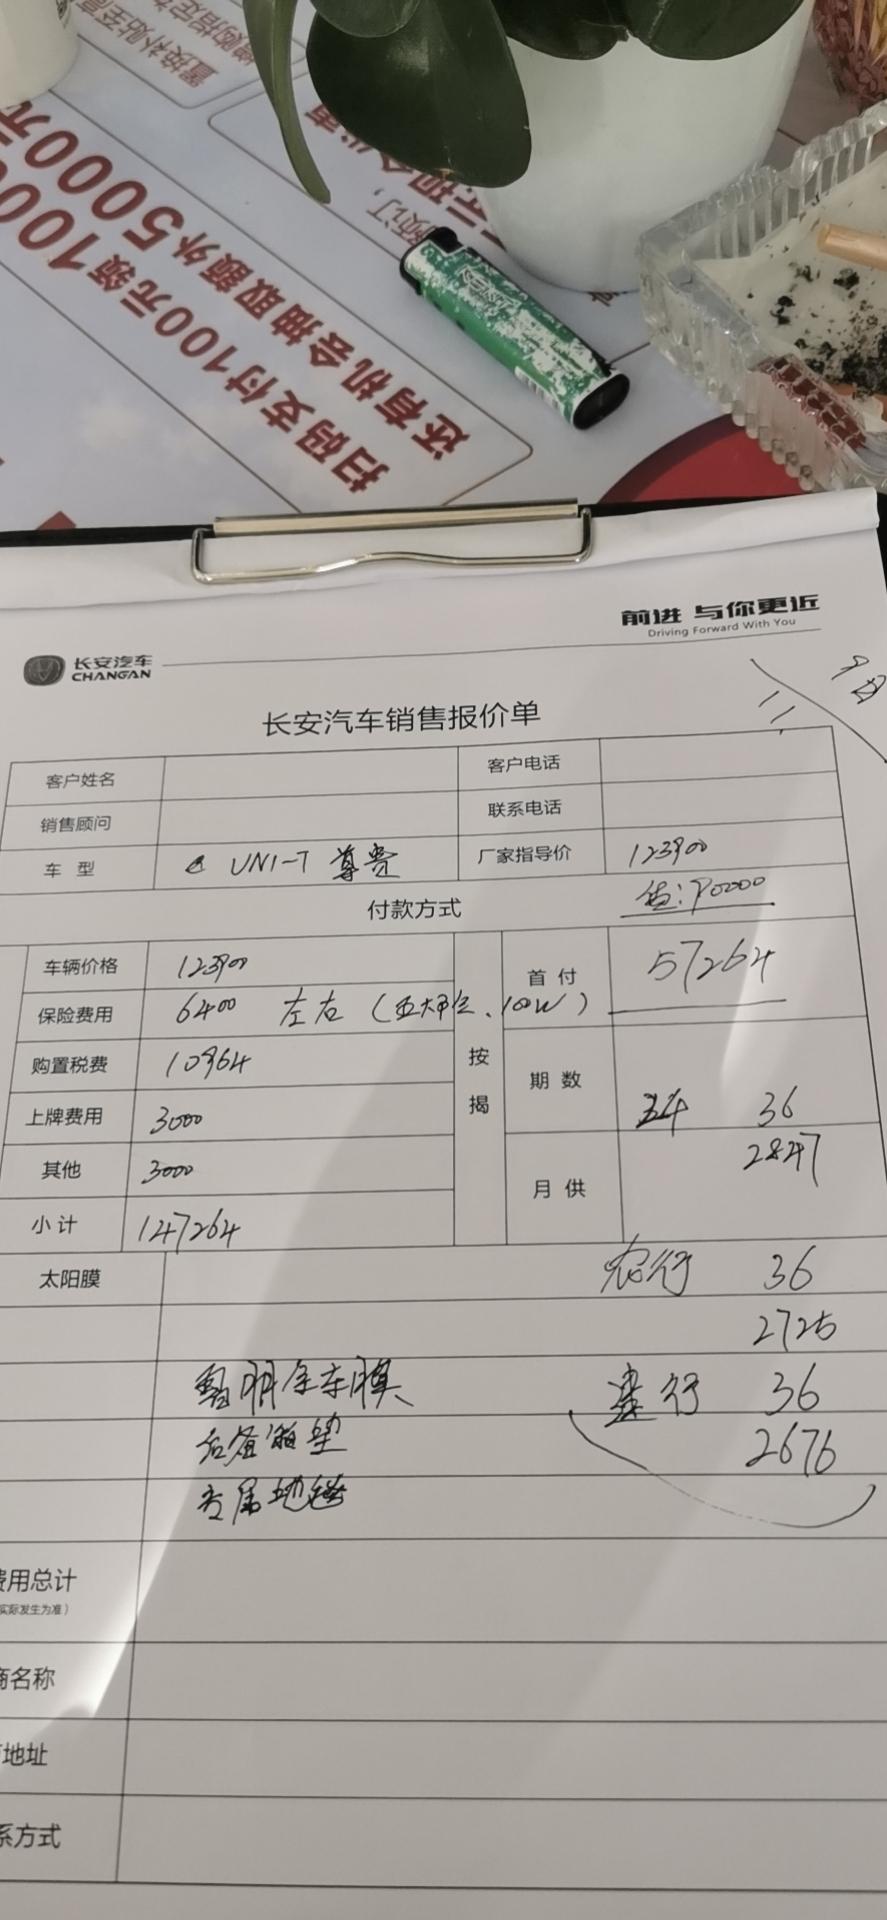 置换补贴至高
增购指定
1000
扫码支付100元领1000元
还有机会抽取额外5000元
预订,
前进 与你更近
Driving Forward With You
长安汽车
CHANGAN
长安汽车销售报价单
11.
客户姓名 客户电话
销售顾问 联系电话
车 型 UNI-T 尊贵 厂家指导价 123900
付款方式 贷:90000
车辆价格 123900 首 付 57264
保险费用 6400 左右 (五大单位、100W)
购置税费 10964 按揭 期 数
上牌费用 3000 36
其他 3000 月 供 2847
小计 147264
太阳膜 农行 36
2725
全车膜 建行 36
后备箱垫 2676
专属地毯
费用总计
实际发生为准)
商名称
地址
系方式